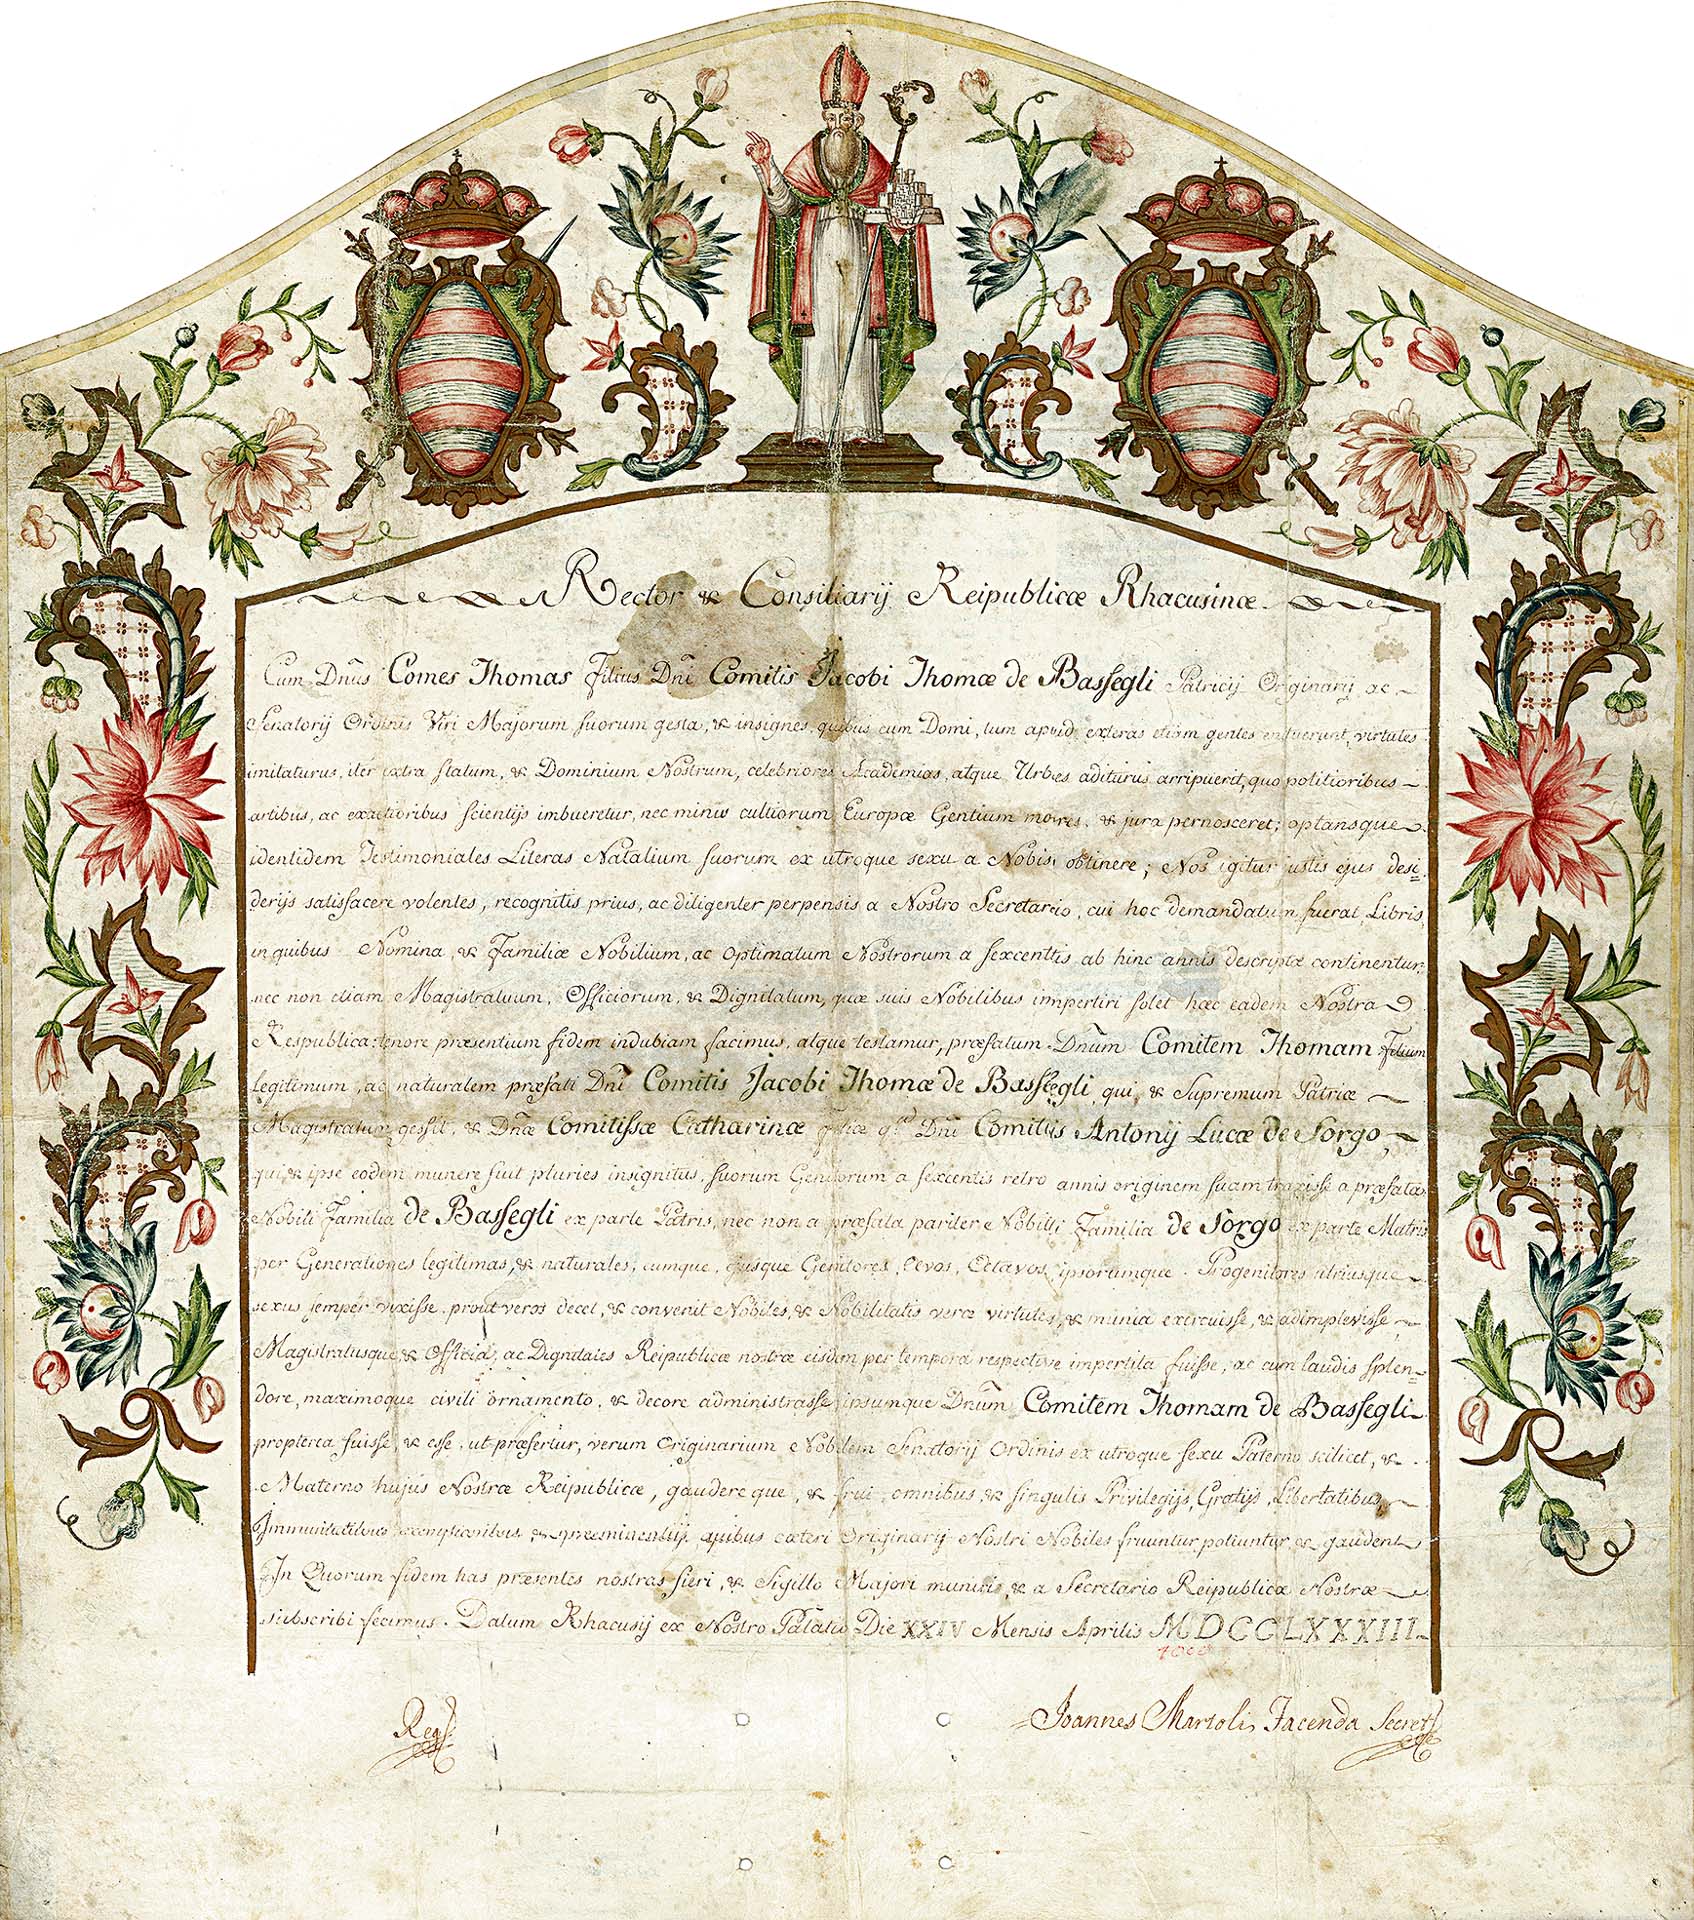 Rector & Consiliarij Reipublicæ Rhacusinæ
Cum Dñus Comes Thomas Filius Dñi Comitis Jacobi Thomæ de Bassegli Patricij Originarij ac
Senatorij Ordinis Viri Majorum suorum gesta, & insignes, quibus cum Domi, tum apud exteras etiam gentes enituerunt, virtutes
imitaturus, iter extra statum, & Dominium Nostrum, celebriores Academias, atque Urbes aditurus arripuerit, quo politioribus
artibus, ac exactioribus scientijs imbueretur, nec minus cultiorum Europæ Gentium mores, & jura pernosceret; optansque
identidem Testimoniales Literas Natalium suorum ex utroque sexu a Nobis obtinere; Nos igitur justis ejus desi=
derijs satisfacere volentes, recognitis prius, ac diligenter perpensis a Nostro Secretario, cui hoc demandatum fuerat, Libris,
in quibus Nomina, & Familiæ Nobilium, ac Optimatum Nostrorum a sexcentis ab hinc annis descriptæ continentur,
nec non etiam Magistratuum, Officiorum, & Dignitatum, quæ suis Nobilibus impertiri solet hæc eadem Nostra
Respublica: tenore præsentium fidem indubiam facimus, atque testamur, præfatum Dñum Comitem Thomam Filium
legitimum, ac naturalem præfati Dñi Comitis Jacobi Thomæ de Bassegli, qui, & Supremum Patriæ
Magistratum gessit, & Dñæ Comitissæ Catharinæ filiæ qm Dñi Comitis Antonij Lucæ de Sorgo,
qui, & ipse eodem munere fuit pluries insignitus, suorum Genitorum a sexcentis retro annis originem suam traxisse a præfata
Nobili Familia de Bassegli ex parte Patris, nec non a præfata pariter Nobili Familia de Sorgo ex parte Matris
per Generationes legitimas, & naturales, eumque, ejusque Genitores, Avos, Atavos, ipsorumque Progenitores utriusque
sexus semper vixisse, prout veros decet, & convenit Nobiles, & Nobilitatis veræ virtutes, & munia exercuisse, & adimplevisse,
Magistratusque, & Officia, ac Dignitates Reipublicæ nostræ eisdem per tempora respective impertita fuisse, ac cum laudis splen=
dore, maximoque civili ornamento, & decore administrasse, ipsumque Dñum Comitem Thomam de Bassegli
propterea fuisse, & esse, ut præfertur, verum Originarium Nobilem Senatorij Ordinis ex utroque sexu Paterno scilicet, &
Materno hujus Nostræ Reipublicæ, gaudereque, & frui omnibus, & singulis Privilegijs, Gratijs, Libertatibus,
Immunitatibus, exemptionibus, & præeminentijs, quibus cæteri Originarij Nostri Nobiles fruuntur, potiuntur, & gaudent
In Quorum fidem has præsentes nostras fieri, & Sigillo Majori muniri, & a Secretario Reipublicæ Nostræ
subscribi fecimus. Datum Rhacusij ex Nostro Palatio Die XXIV Mensis Aprilis MDCCLXXXIII.
Joannes Martoli Facenda Secret